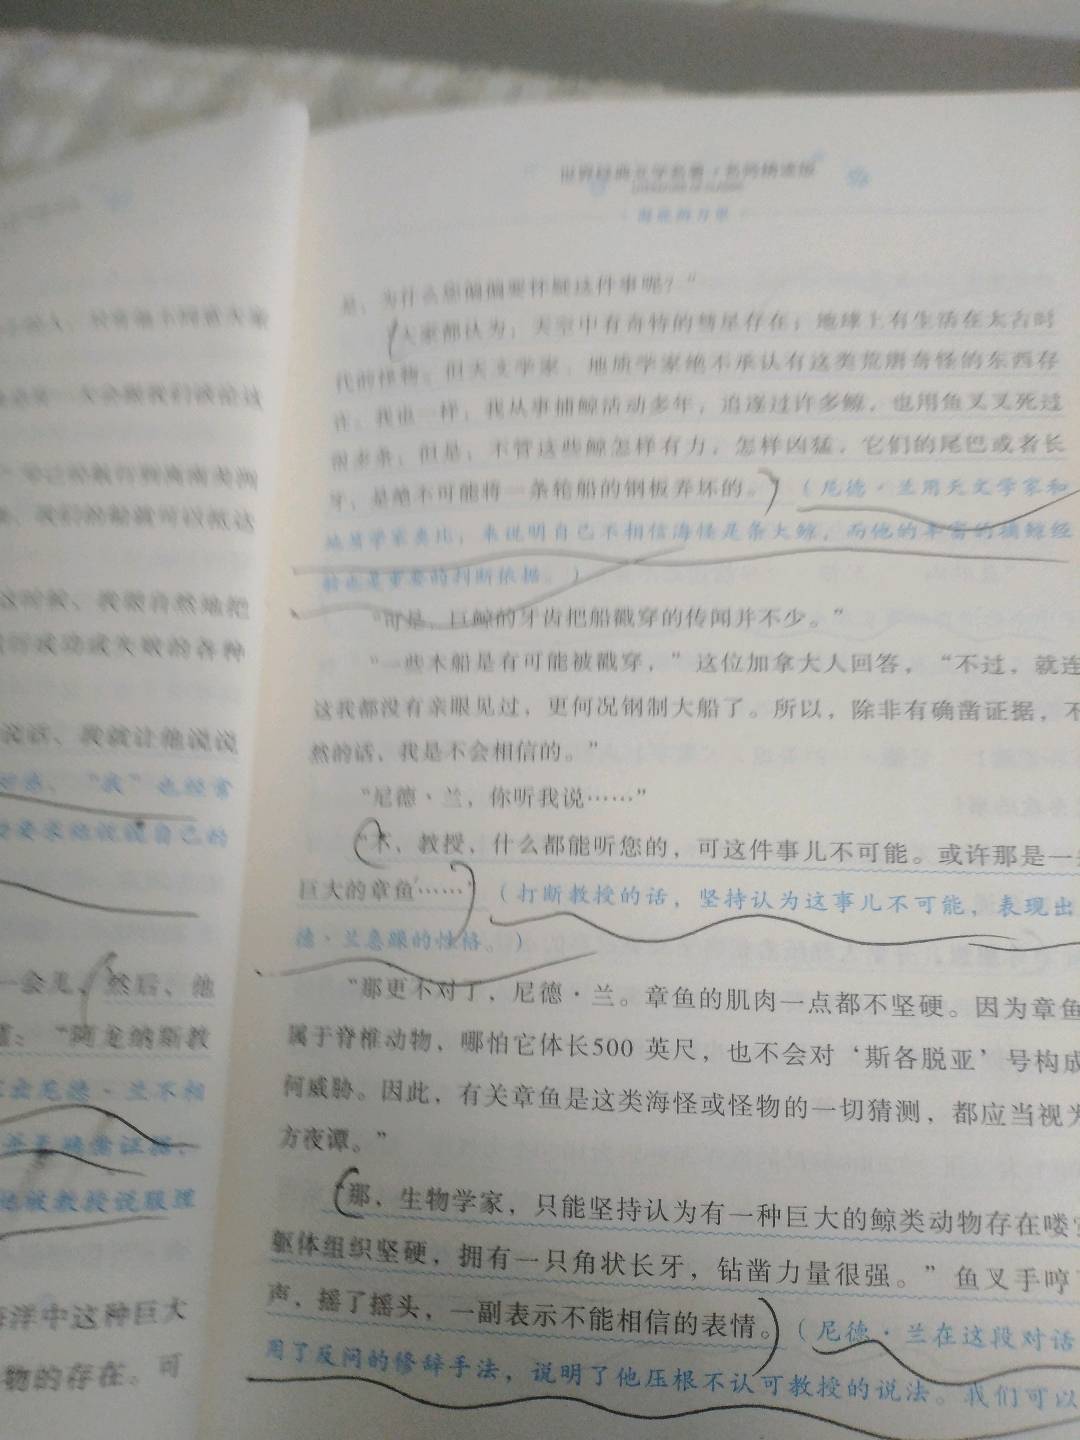 世界经典文学名著·名师精读版
海底两万里
是，为什么您偏偏要怀疑这件事呢？”
大家都认为：天空中有奇特的彗星存在；地球上有生活在太古时
代的怪物。但天文学家、地质学家绝不承认有这类荒唐奇怪的东西存
在。我也一样，我从事捕鲸活动多年，追逐过许多鲸，也用鱼叉叉死过
很多条，但是，不管这些鲸怎样有力，怎样凶猛，它们的尾巴或者长
牙，是绝不可能将一条轮船的钢板弄坏的。（尼德·兰用天文学家和
地质学家类比，来说明自己不相信海怪是条大鲸，而他的丰富的捕鲸经
验也是重要的判断依据。）
“可是，巨鲸的牙齿把船戳穿的传闻并不少。”
“一些木船是有可能被戳穿，”这位加拿大人回答，“不过，就连
这我都没有亲眼见过，更何况钢制大船了。所以，除非有确凿证据，不
然的话，我是不会相信的。”
“尼德·兰，你听我说……”
“不，教授，什么都能听您的，可这件事儿不可能。或许那是一
巨大的章鱼……”（打断教授的话，坚持认为这事儿不可能，表现出
德·兰急躁的性格。）
“那更不对了，尼德·兰。章鱼的肌肉一点都不坚硬。因为章鱼
属于脊椎动物，哪怕它体长500 英尺，也不会对‘斯各脱亚’号构成
何威胁。因此，有关章鱼是这类海怪或怪物的一切猜测，都应当视为
方夜谭。”
“那，生物学家，只能坚持认为有一种巨大的鲸类动物存在喽
躯体组织坚硬，拥有一只角状长牙，钻凿力量很强。”鱼叉手哼
声，摇了摇头，一副表示不能相信的表情。（尼德·兰在这段对话
用了反问的修辞手法，说明了他压根不认可教授的说法。我们可以
这时候，我很自然地把
成功或失败的各种
说话，我就让他说说
“我”也经常
要求他收回自己的
一会儿，然后，他
：“阿龙纳斯教
尼德·兰不相
确凿证据，
他被教授说服理
海洋中这种巨大
物的存在。可